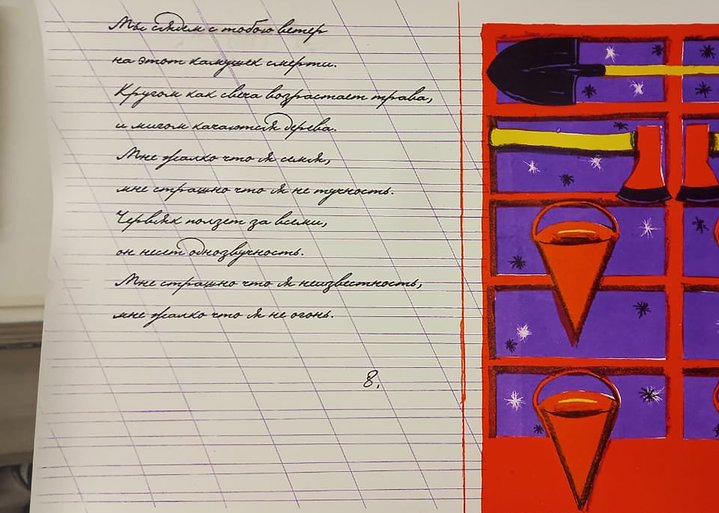 Мы сядем с тобою ветер
на этот камушек смерти.
Кругом как свеча возрастает трава,
и мигом качаются дерева.
Мне жалко что я семя,
мне страшно что я не тучность.
Червяк ползет за всеми,
он несет однозвучность.
Мне страшно что я неизвестность,
мне жалко что я не огонь.
8.